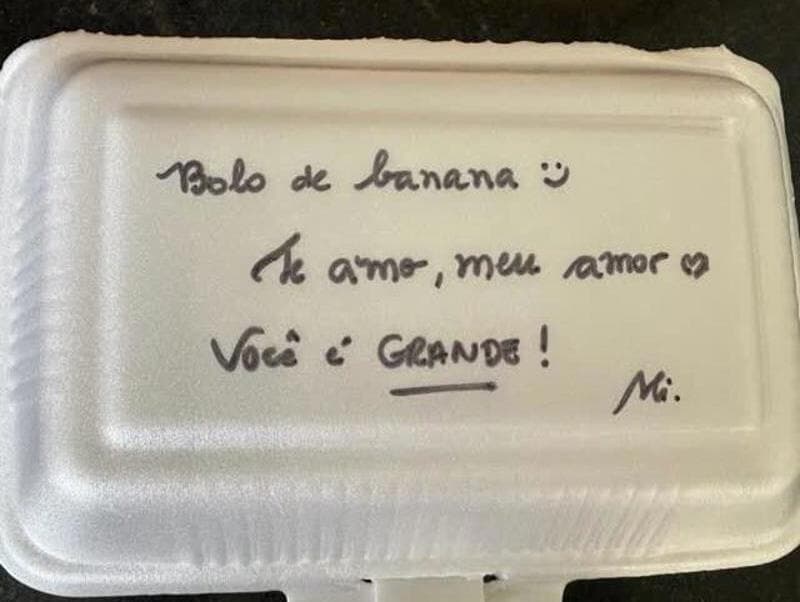 Bolo de banana :)
Te amo, meu amor ♡
Você é GRANDE!
Mi.